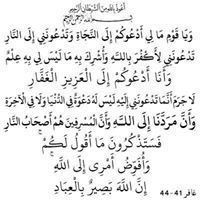 أعوذ بالله من الشيطان الرجيم
بسم الله الرحمن الرحيم
وَيَا قَوْمِ مَا لِي أَدْعُوكُمْ إِلَى النَّجَاةِ وَتَدْعُونَنِي إِلَى النَّارِ
تَدْعُونَنِي لِأَكْفُرَ بِاللَّهِ وَأُشْرِكَ بِهِ مَا لَيْسَ لِي بِهِ عِلْمٌ
وَأَنَا أَدْعُوكُمْ إِلَى الْعَزِيزِ الْغَفَّارِ
لَا جَرَمَ أَنَّمَا تَدْعُونَنِي إِلَيْهِ لَيْسَ لَهُ دَعْوَةٌ فِي الدُّنْيَا وَلَا فِي الْآخِرَةِ
وَأَنَّ مَرَدَّنَا إِلَى اللَّهِ وَأَنَّ الْمُسْرِفِينَ هُمْ أَصْحَابُ النَّارِ
فَسَتَذْكُرُونَ مَا أَقُولُ لَكُمْ ۚ
وَأُفَوِّضُ أَمْرِي إِلَى اللَّهِ ۚ
إِنَّ اللَّهَ بَصِيرٌ بِالْعِبَادِ
غافر 41 - 44